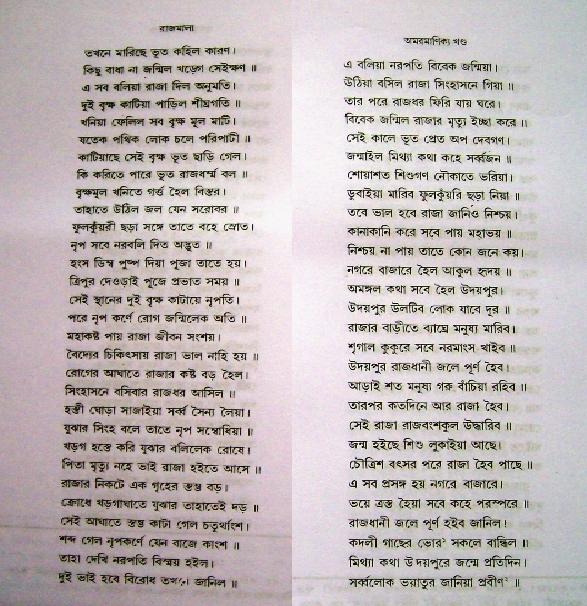 রাজমালা
তখনে মারিছে ভূত কহিল কারণ।
কিছু বাধা না জন্মিল খড়্গে সেইক্ষণ ॥
এ সব বলিয়া রাজা দিল অনুমতি।
দুই বৃক্ষ কাটিয়া পাড়িল শীঘ্রগতি ॥
খনিয়া ফেলিল সব বৃক্ষ মূল মাটি।
যতেক পথিক লোক চলে পরিপাটী ॥
কাটিয়াছে সেই বৃক্ষ ভূত ছাড়ি গেল।
কি করিতে পারে ভূত রাজধর্ম্ম বল ॥
বৃক্ষমূল খনিতে গর্ত্ত হৈল বিস্তর।
তাহাতে উঠিল জল যেন সরোবর ॥
ফুলকুঁয়রী ছড়া সঙ্গে তাতে বহে স্রোত।
নৃপ সবে নরবলি দিত অদ্ভুত ॥
হংস ডিম্ব পুষ্প দিয়া পূজা তাতে হয়।
ত্রিপুর দেওড়াই পূজে প্রভাত সময় ॥
সেই স্থানের দুই বৃক্ষ কাটায়ে নৃপতি।
পরে নৃপ কর্ণে রোগ জন্মিলেক অতি ॥
মহাকষ্ট পায় রাজা জীবন সংশয়।
বৈদ্যের চিকিৎসায় রাজা ভাল নাহি হয় ॥
রোগের আঘাতে রাজার কষ্ট বড় হৈল।
সিংহাসনে বসিবার রাজধর আসিল ॥
হস্তী ঘোড়া সাজাইয়া সর্ব্ব সৈন্য লৈয়া।
যুঝার সিংহ বলে তাতে নৃপ সম্বোধিয়া ॥
খড়গ হস্তে করি যুঝার বলিলেক রোষে।
পিতা মৃত্যু নহে ভাই রাজা হইতে আসে ॥
রাজার নিকটে এক গৃহের স্তম্ভ বড়।
ক্রোধে খড়গাঘাতে যুঝার তাহাতেই দড় ॥
সেই আঘাতে স্তম্ভ কাটা গেল চতুর্থাংশ।
শব্দ গেল নৃপকর্ণে যেন বাজে কাংশ ॥
তাহা দেখি নরপতি বিস্ময় হইল।
দুই ভাই হবে বিরোধ তখনে জানিল ॥
অমরমাণিক্য খণ্ড
এ বলিয়া নরপতি বিবেক জন্মিয়া।
উঠিয়া বসিল রাজা সিংহাসনে গিয়া ॥
তার পরে রাজধর ফিরি যায় ঘরে।
বিবেক জন্মিল রাজার মৃত্যু ইচ্ছা করে ॥
সেই কালে ভূত প্রেত অপ দেবগণ।
জন্মাইল মিথ্যা কথা কহে সর্ব্বজন ॥
শোয়াশত শিশুগণ নৌকাতে ভরিয়া।
ডুবাইয়া মারিব ফুলকুঁয়রি ছড়া নিয়া ॥
তবে ভাল হবে রাজা জানিও নিশ্চয়।
কানাকানি করে সবে পায় মহাভয় ॥
নিশ্চয় না পায় তাতে কোন জনে কয়।
নগরে বাজারে হৈল আকুল হৃদয় ॥
অমঙ্গল কথা সবে হৈল উদয়পুর।
উদয়পুর উলটিব লোক যাবে দূর ॥
রাজার বাড়ীতে ব্যাঘ্রে মনুষ্য মারিব।
শৃগাল কুকুরে সবে নরমাংস খাইব ॥
উদয়পুর রাজধানী জলে পূর্ণ হৈব।
আড়াই শত মনুষ্য গরু বাঁচিয়া রহিব ॥
তারপর কতদিনে আর রাজা হৈব।
সেই রাজা রাজবংশকুল উদ্ধারিব ॥
জন্ম হইছে শিশু লুকাইয়া আছে।
চৌত্রিশ বৎসর পরে রাজা হৈব পাছে ॥
এ সব প্রসঙ্গ হয় নগরে বাজারে।
ভয়ে ত্রস্ত হৈয়া সবে কহে পরস্পরে ॥
রাজধানী জলে পূর্ণ হইব জানিল।
কদলী গাছের ভোর² সকলে বান্ধিল ॥
মিথ্যা কথা উদয়পুরে জন্মে প্রতিদিন।
সর্ব্বলোক ভয়াতুর জানিয়া প্রবীণ³ ॥